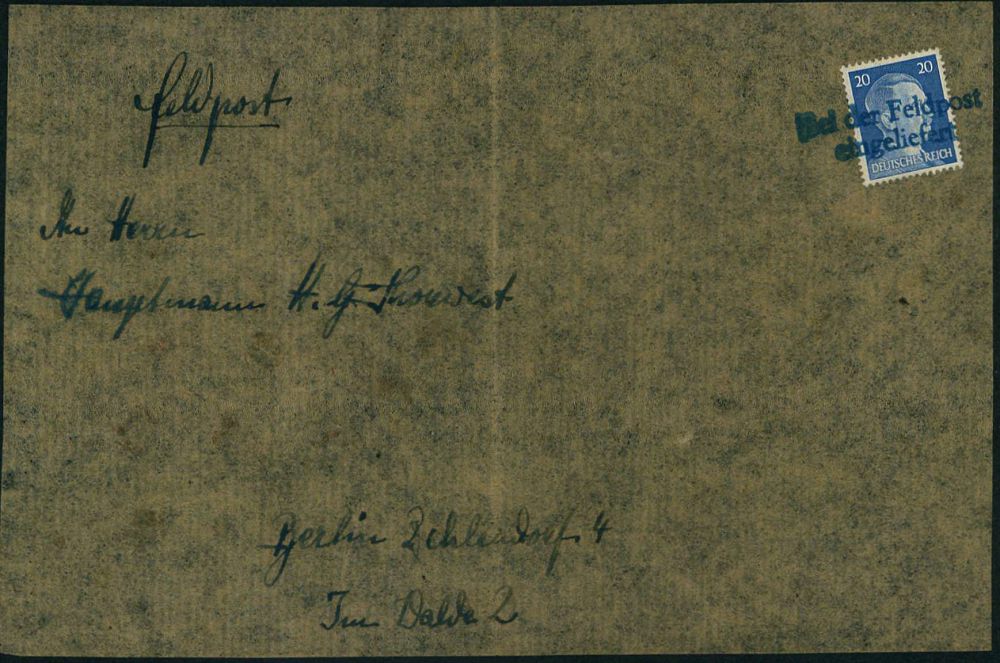 Feldpost
20 20
Bei der Feldpost
eingeliefert
DEUTSCHES REICH
An Herrn
Hauptmann H. G.
Berlin Zehlendorf. 4
Im 2